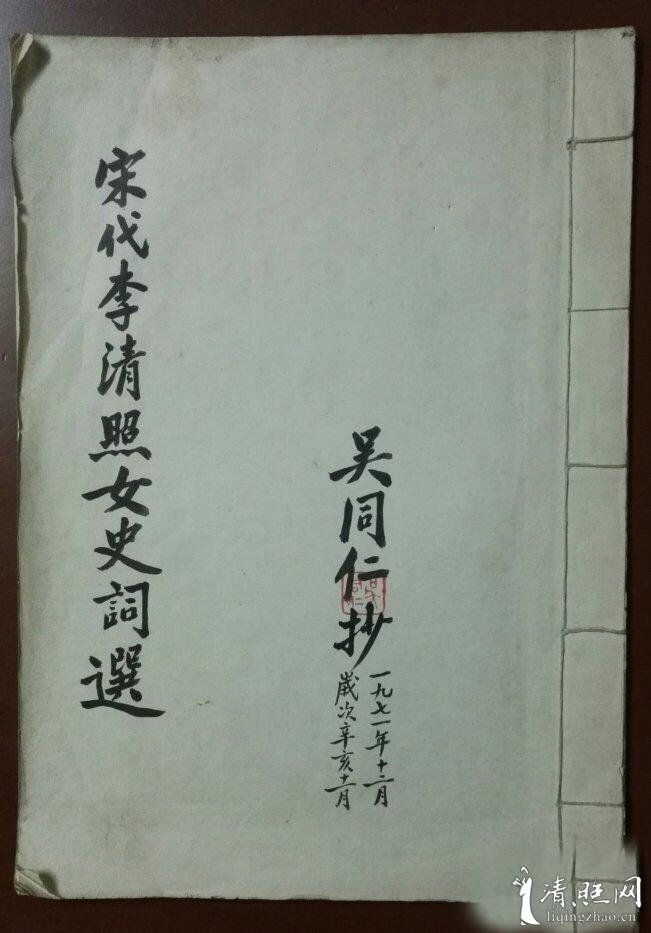 宋代李清照女史詞選
吴同仁抄
一九七一年十二月
歲次辛亥十一月
清照网
liqingzhao.cn